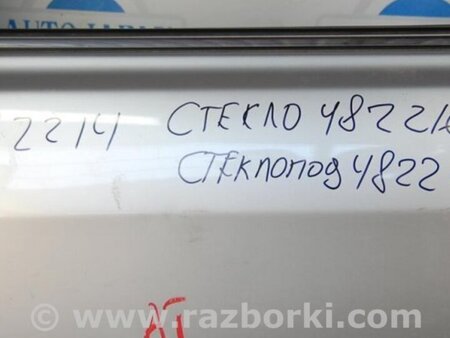 AUTO JAPAN
2214 СТЕКЛО 4822
СТЕКЛОПОД 4822
www.razborki.com